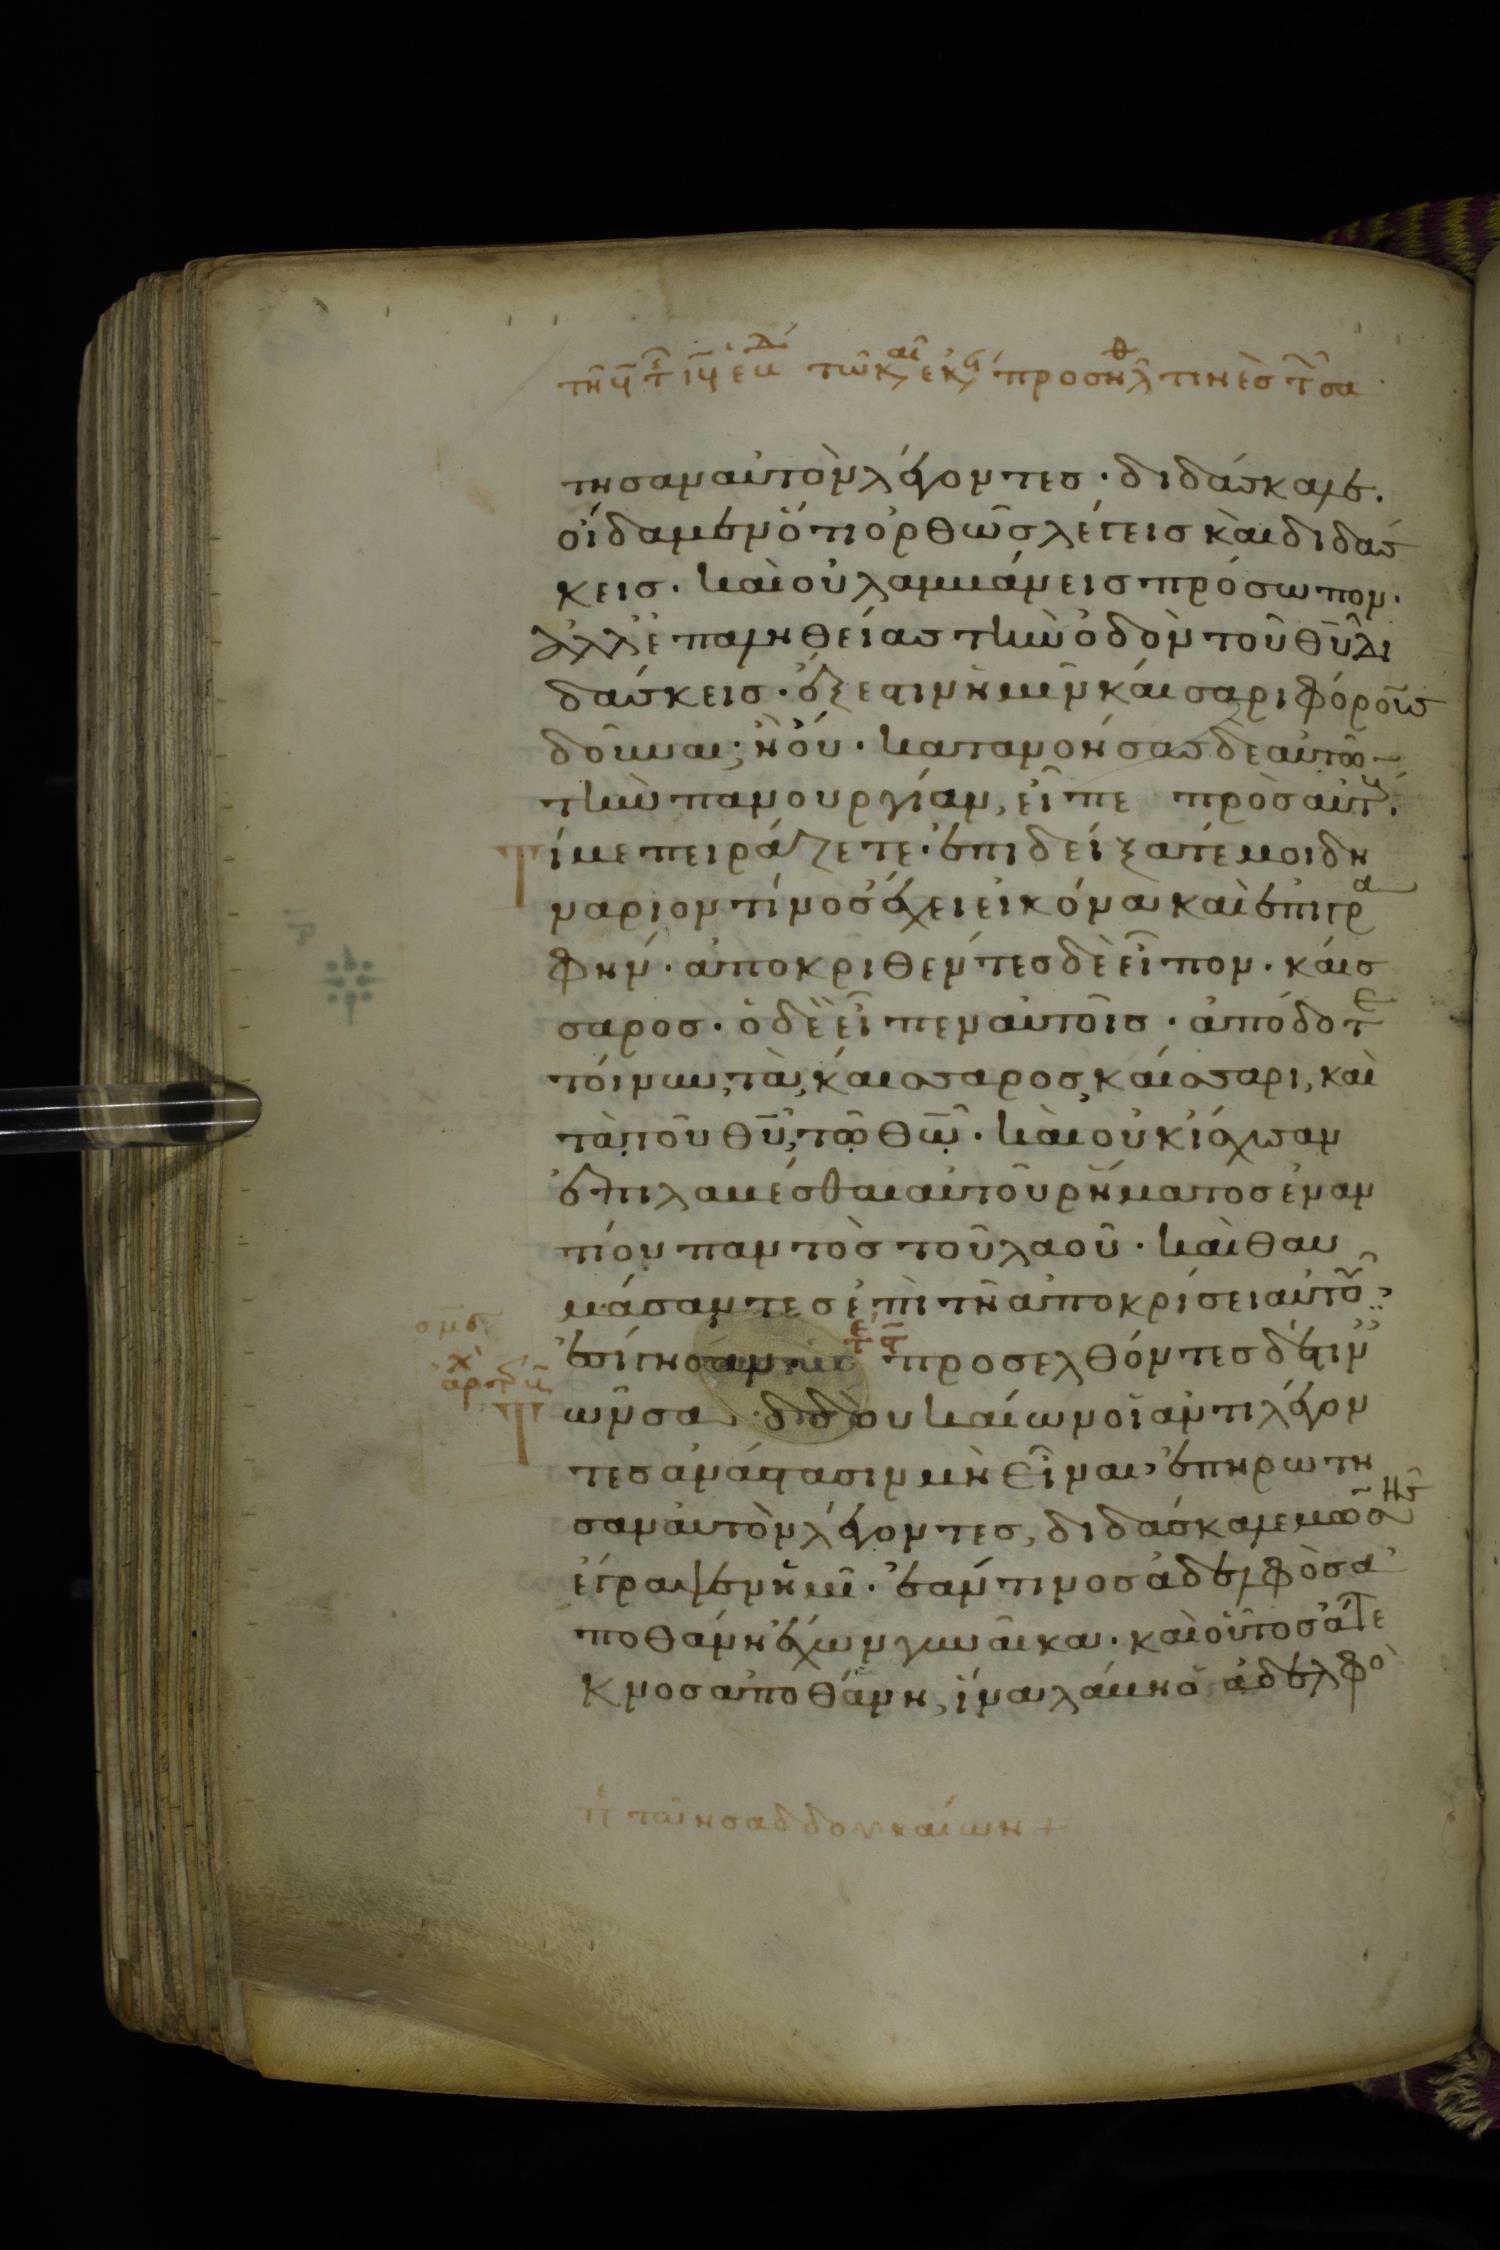 τησαν αὐτὸν λέγοντες · διδάσκαλε.
οἴδαμεν ὅτι ὀρθῶς λέγεις καὶ διδάσ
κεις · καὶ οὐ λαμβάνεις πρόσωπον ·
ἀλλ ἐπ αληθείας τὴν ὁδὸν τοῦ θυ δι
δάσκεις · ἔξεστιν ἡμῖν καίσαρι φόρους
δοῦναι · ἢ οὔ · κατανοήσας δὲ αὐτῶν
τὴν πανουργίαν, εἶπε πρὸς αὐτούς.
Τί με πειράζετε · ἐπιδείξατέ μοι δη
ναριον τίνος ἔχει εἰκόνα καὶ ἐπιγρα
φην · ἀποκριθέντες δὲ εἶπον · καίσ
σαρος · ὁ δὲ εἶπεν αὐτοῖς · ἀπόδοτε
τοίνυν, τὰ καίσαρος καίσαρι, καὶ
τὰ τοῦ θυ, τῷ θω · καὶ οὐκ ἴσχυσαν
ἐπιλαβέσθαι αὐτοῦ ῥήματος ἐναν
τίον παντὸς τοῦ λαοῦ · καὶ θαυ
μάσαντες ἐπὶ τῇ ἀποκρίσει αὐτοῦ
ἐσίγησαν · προσελθόντες δέ τιν
ων σα δδουκαίων οἱ ἀντιλέγον
τες ἀνάστασιν μὴ εἶναι, ἐπηρωτη
σαν αὐτὸν λέγοντες, διδάσκαλε μωσῆς
ἔγραψεν ἡμῖν · ἐάν τινος ἀδελφὸς ἀ
ποθάνῃ ἔχων γυναῖκα · καὶ οὗτος ἄτε
κνος ἀποθάνῃ, ἵνα λάβῃ ὁ ἀδελφὸ